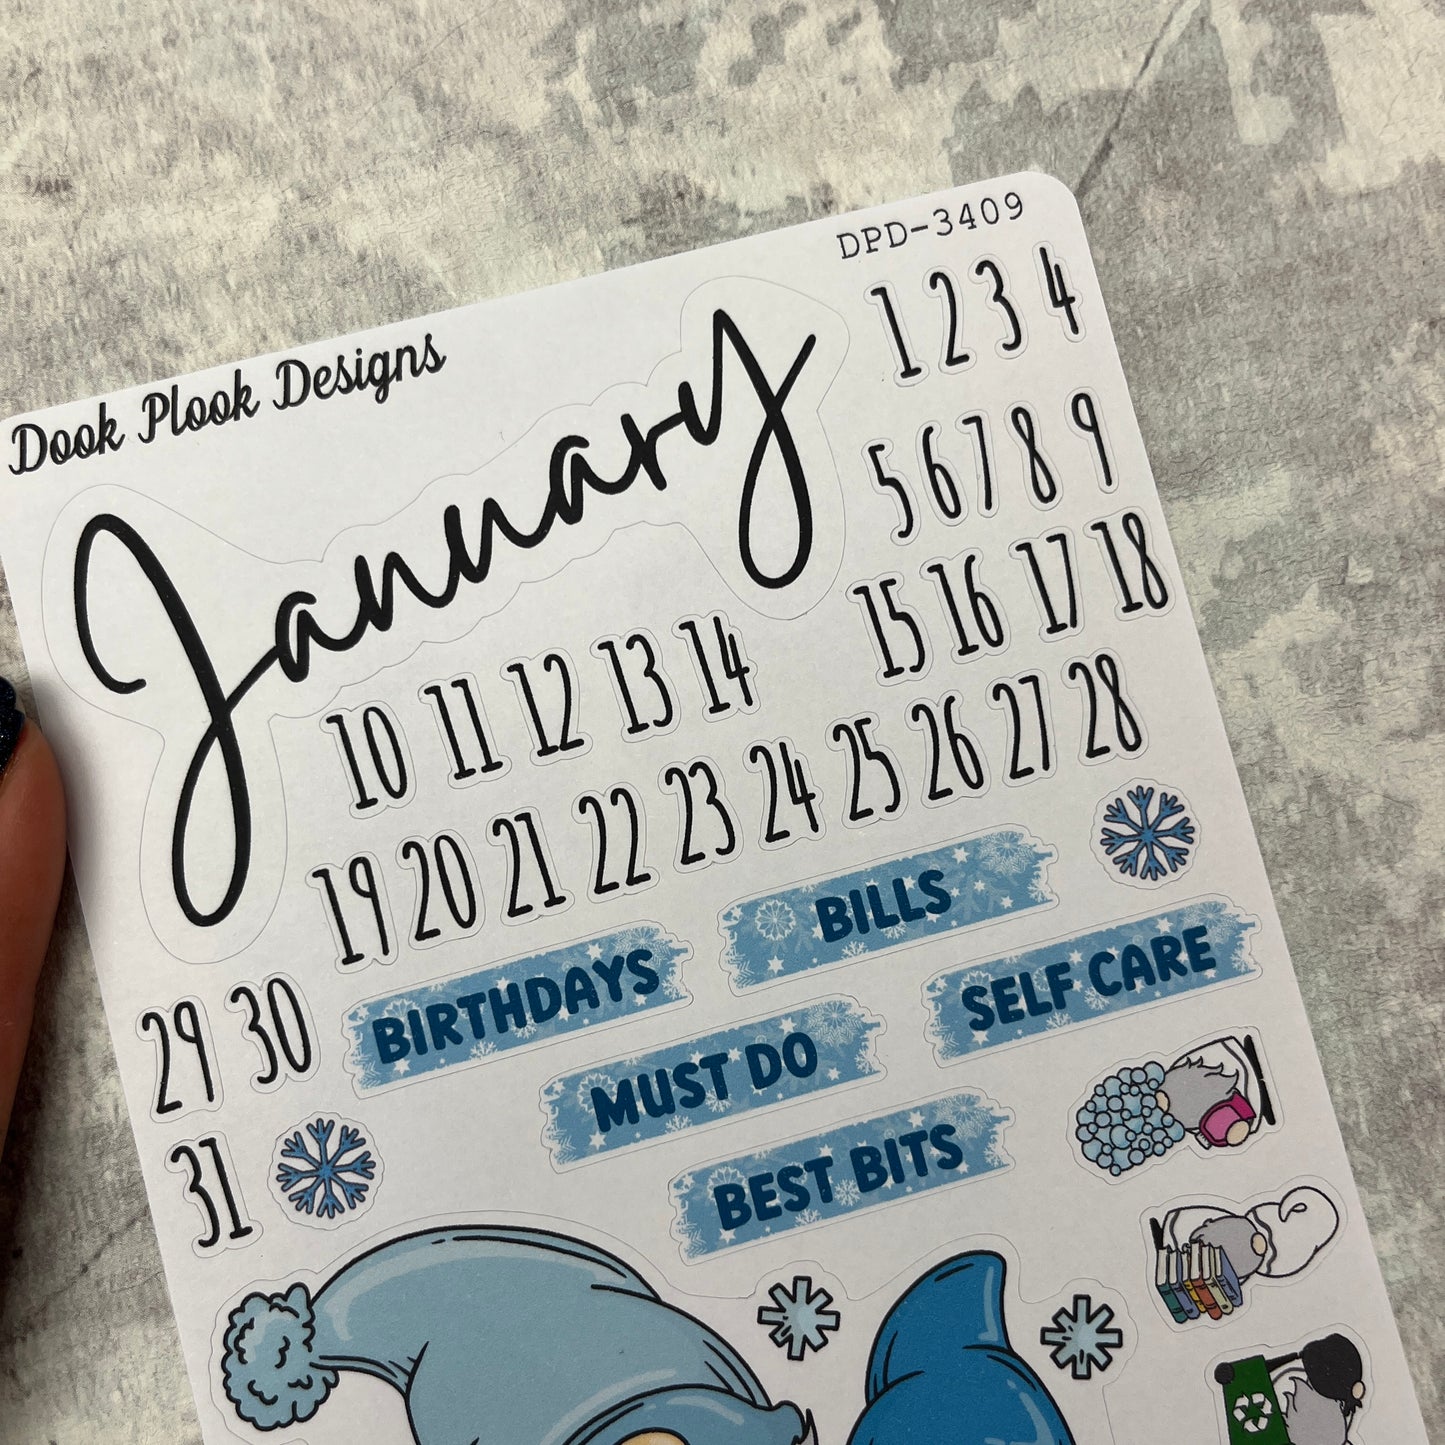 Dook Plook Designs
DPD-3409
January
1 2 3 4
5 6 7 8 9
10 11 12 13 14
15 16 17 18
19 20 21 22 23 24 25 26 27 28
29 30
31
BILLS
BIRTHDAYS
SELF CARE
MUST DO
BEST BITS